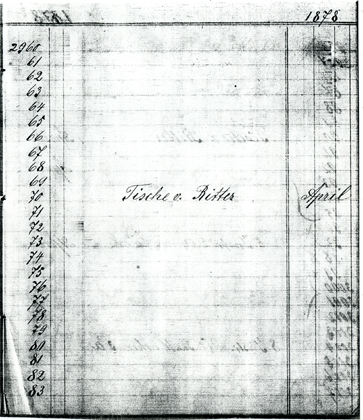 1878
2960
61
62
63
64
65
66
67
68
69
70 Tische v. Ritter April
71
72
73
74
75
76
77
78
79
80
81
82
83